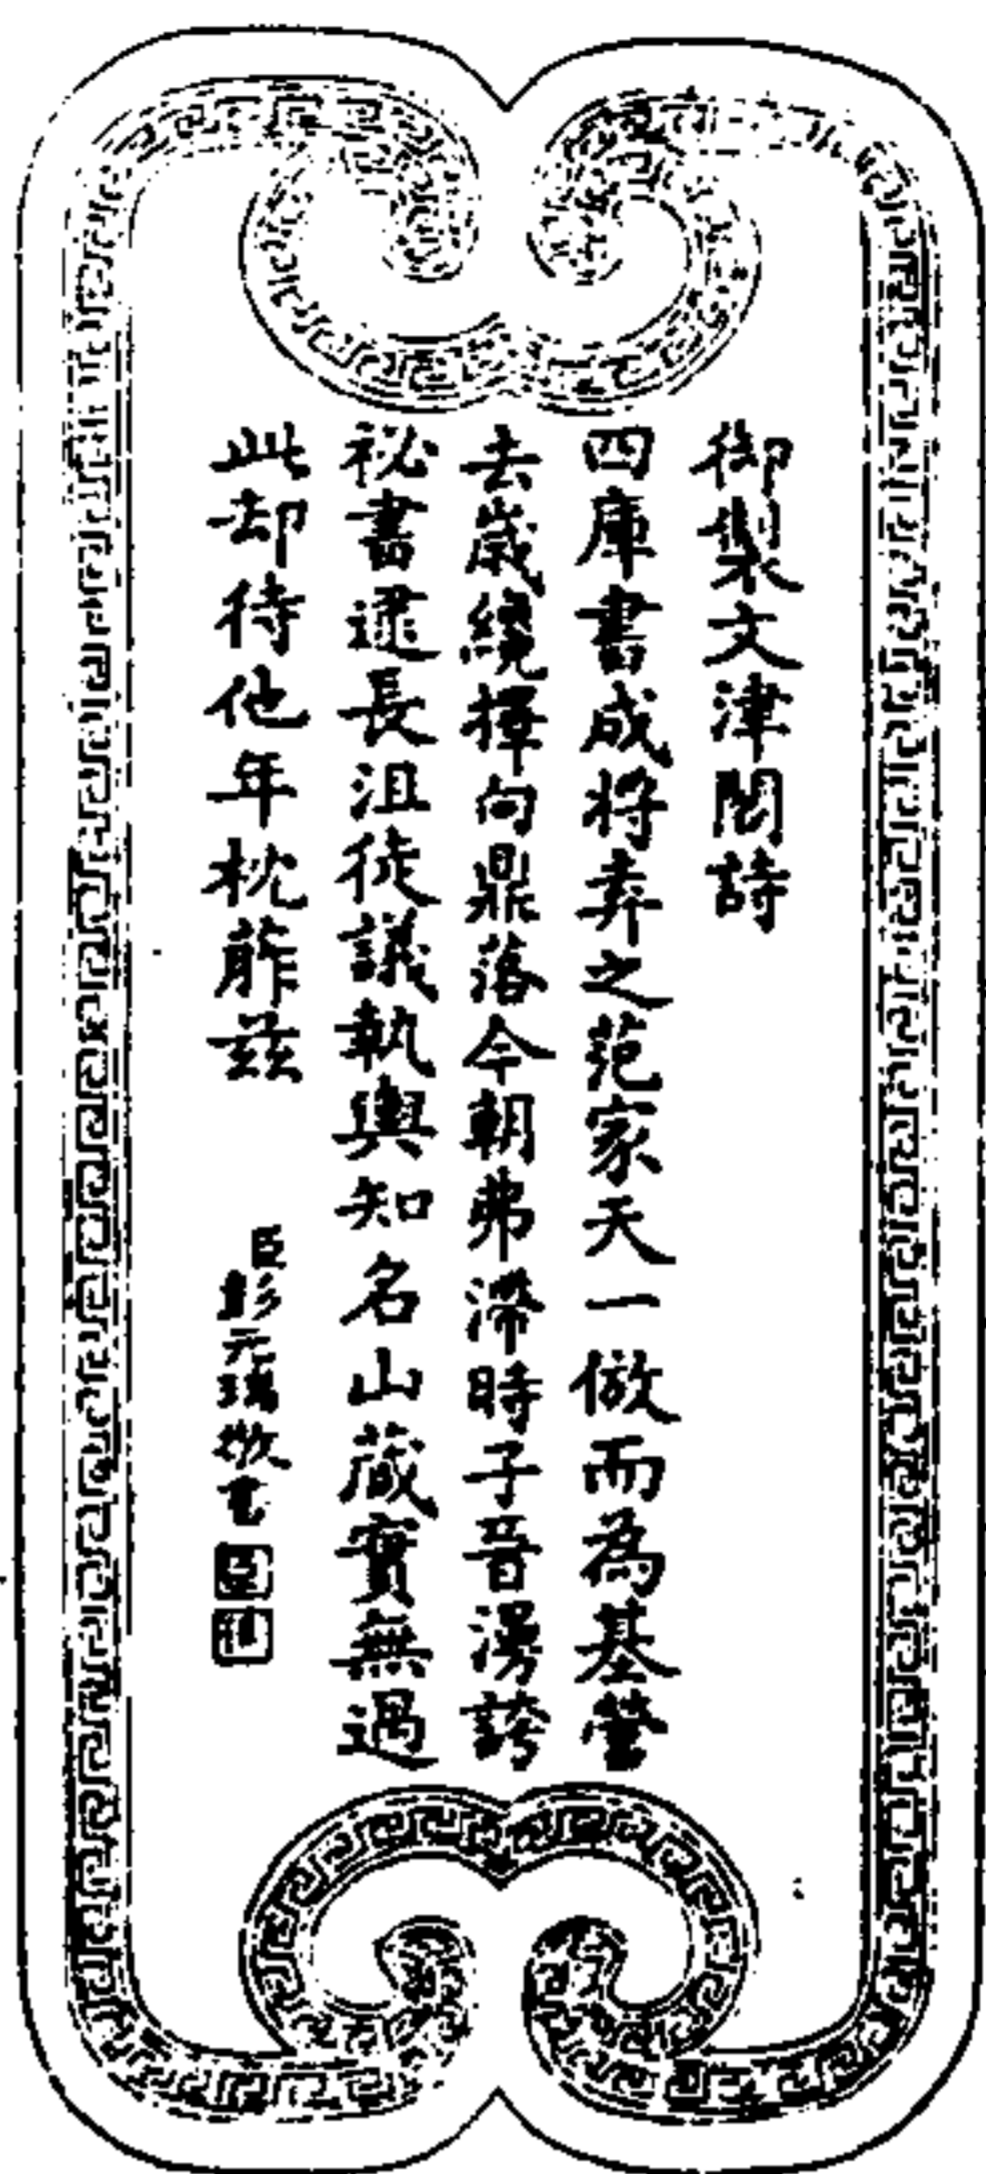 御製文津閣詩
四庫書成將弆之范家天一倣而為基營
去歲纔擇向鼎落今朝弗滯時子晉漫誇
祕書逮長沮徒議執輿知名山藏實無過
此却待他年枕葄茲
臣彭元瑞敬書